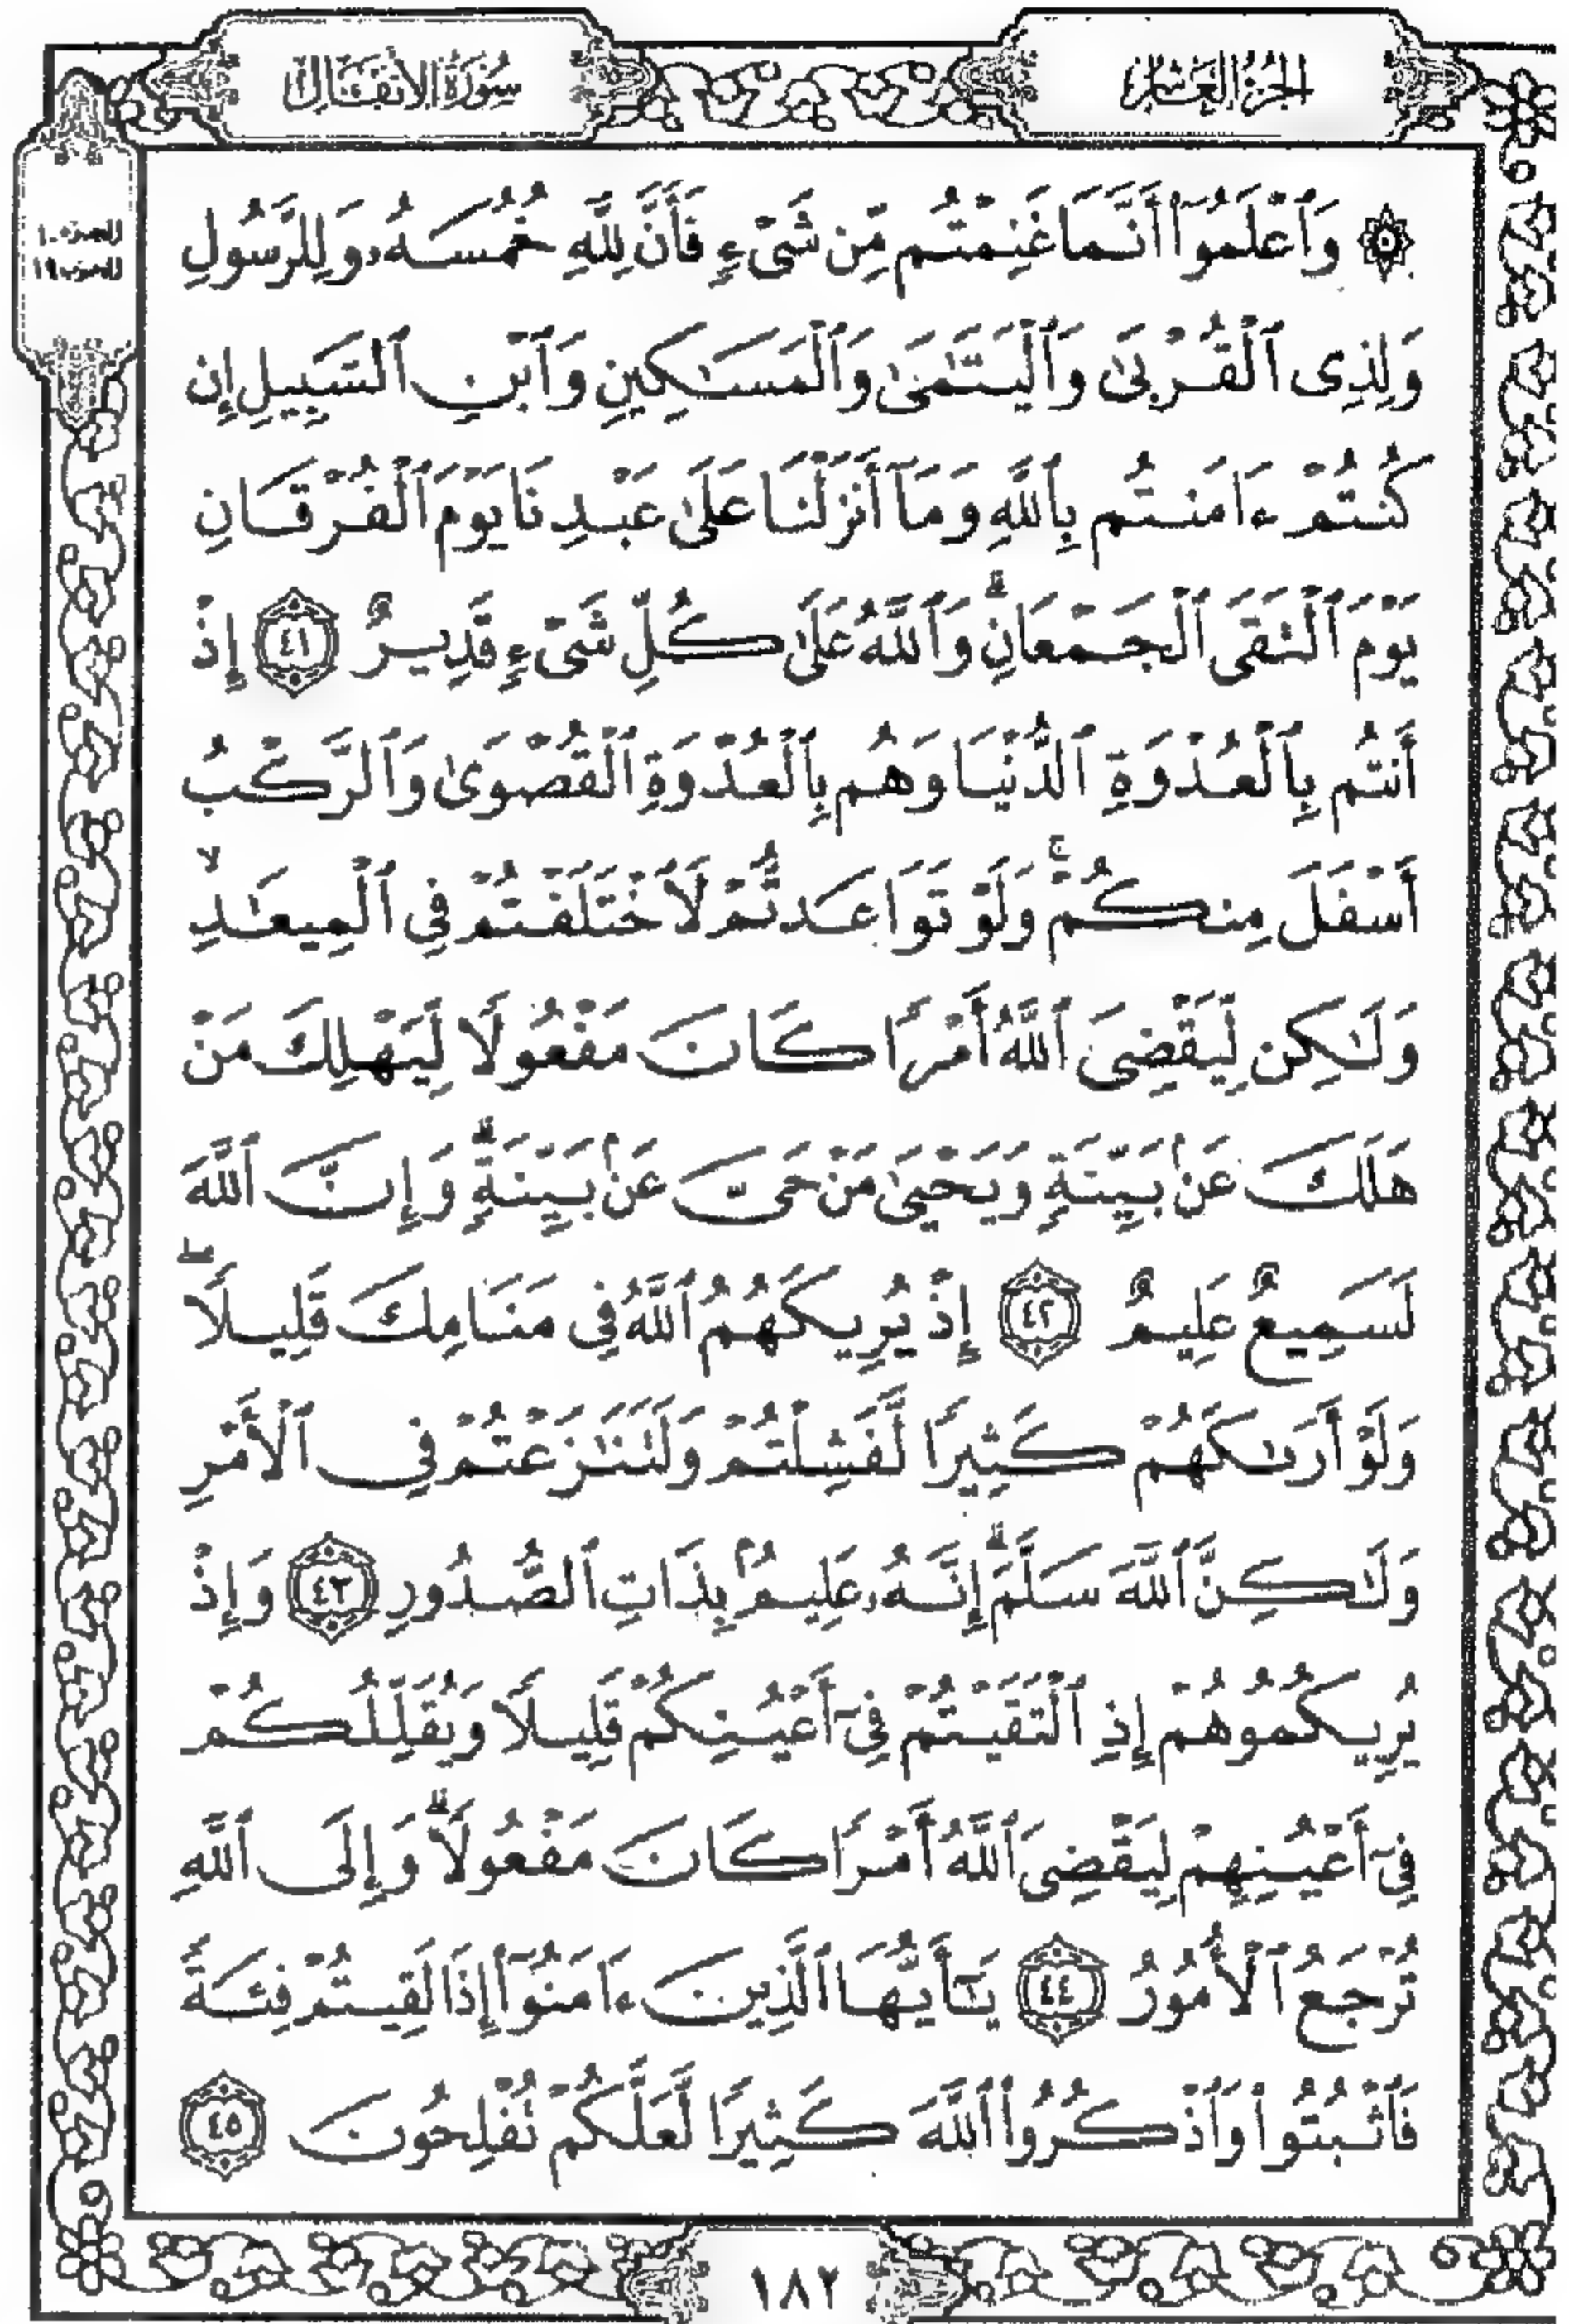 الجزء العاشر
سورة الأنفال
الجزء ١٠
الحزب ١٩
۞ وَٱعْلَمُوٓا۟ أَنَّمَا غَنِمْتُم مِّن شَىْءٍ فَأَنَّ لِلَّهِ خُمُسَهُۥ وَلِلرَّسُولِ
وَلِذِى ٱلْقُرْبَىٰ وَٱلْيَتَـٰمَىٰ وَٱلْمَسَـٰكِينِ وَٱبْنِ ٱلسَّبِيلِ إِن
كُنتُمْ ءَامَنتُم بِٱللَّهِ وَمَآ أَنزَلْنَا عَلَىٰ عَبْدِنَا يَوْمَ ٱلْفُرْقَانِ
يَوْمَ ٱلْتَقَى ٱلْجَمْعَانِ ۗ وَٱللَّهُ عَلَىٰ كُلِّ شَىْءٍ قَدِيرٌ ٤١ إِذْ
أَنتُم بِٱلْعُدْوَةِ ٱلدُّنْيَا وَهُم بِٱلْعُدْوَةِ ٱلْقُصْوَىٰ وَٱلرَّكْبُ
أَسْفَلَ مِنكُمْ ۚ وَلَوْ تَوَاعَدتُّمْ لَٱخْتَلَفْتُمْ فِى ٱلْمِيعَـٰدِ ۙ
وَلَـٰكِن لِّيَقْضِىَ ٱللَّهُ أَمْرًا كَانَ مَفْعُولًا لِّيَهْلِكَ مَنْ
هَلَكَ عَنۢ بَيِّنَةٍ وَيَحْيَىٰ مَنْ حَىَّ عَنۢ بَيِّنَةٍ ۗ وَإِنَّ ٱللَّهَ
لَسَمِيعٌ عَلِيمٌ ٤٢ إِذْ يُرِيكَهُمُ ٱللَّهُ فِى مَنَامِكَ قَلِيلًا ۖ
وَلَوْ أَرَىٰكَهُمْ كَثِيرًا لَّفَشِلْتُمْ وَلَتَنَـٰزَعْتُمْ فِى ٱلْأَمْرِ
وَلَـٰكِنَّ ٱللَّهَ سَلَّمَ ۗ إِنَّهُۥ عَلِيمٌۢ بِذَاتِ ٱلصُّدُورِ ٤٣ وَإِذْ
يُرِيكُمُوهُمْ إِذِ ٱلْتَقَيْتُمْ فِىٓ أَعْيُنِكُمْ قَلِيلًا وَيُقَلِّلُكُمْ
فِىٓ أَعْيُنِهِمْ لِيَقْضِىَ ٱللَّهُ أَمْرًا كَانَ مَفْعُولًا ۗ وَإِلَى ٱللَّهِ
تُرْجَعُ ٱلْأُمُورُ ٤٤ يَـٰٓأَيُّهَا ٱلَّذِينَ ءَامَنُوٓا۟ إِذَا لَقِيتُمْ فِئَةً
فَٱثْبُتُوا۟ وَٱذْكُرُوا۟ ٱللَّهَ كَثِيرًا لَّعَلَّكُمْ تُفْلِحُونَ ٤٥
١٨٢